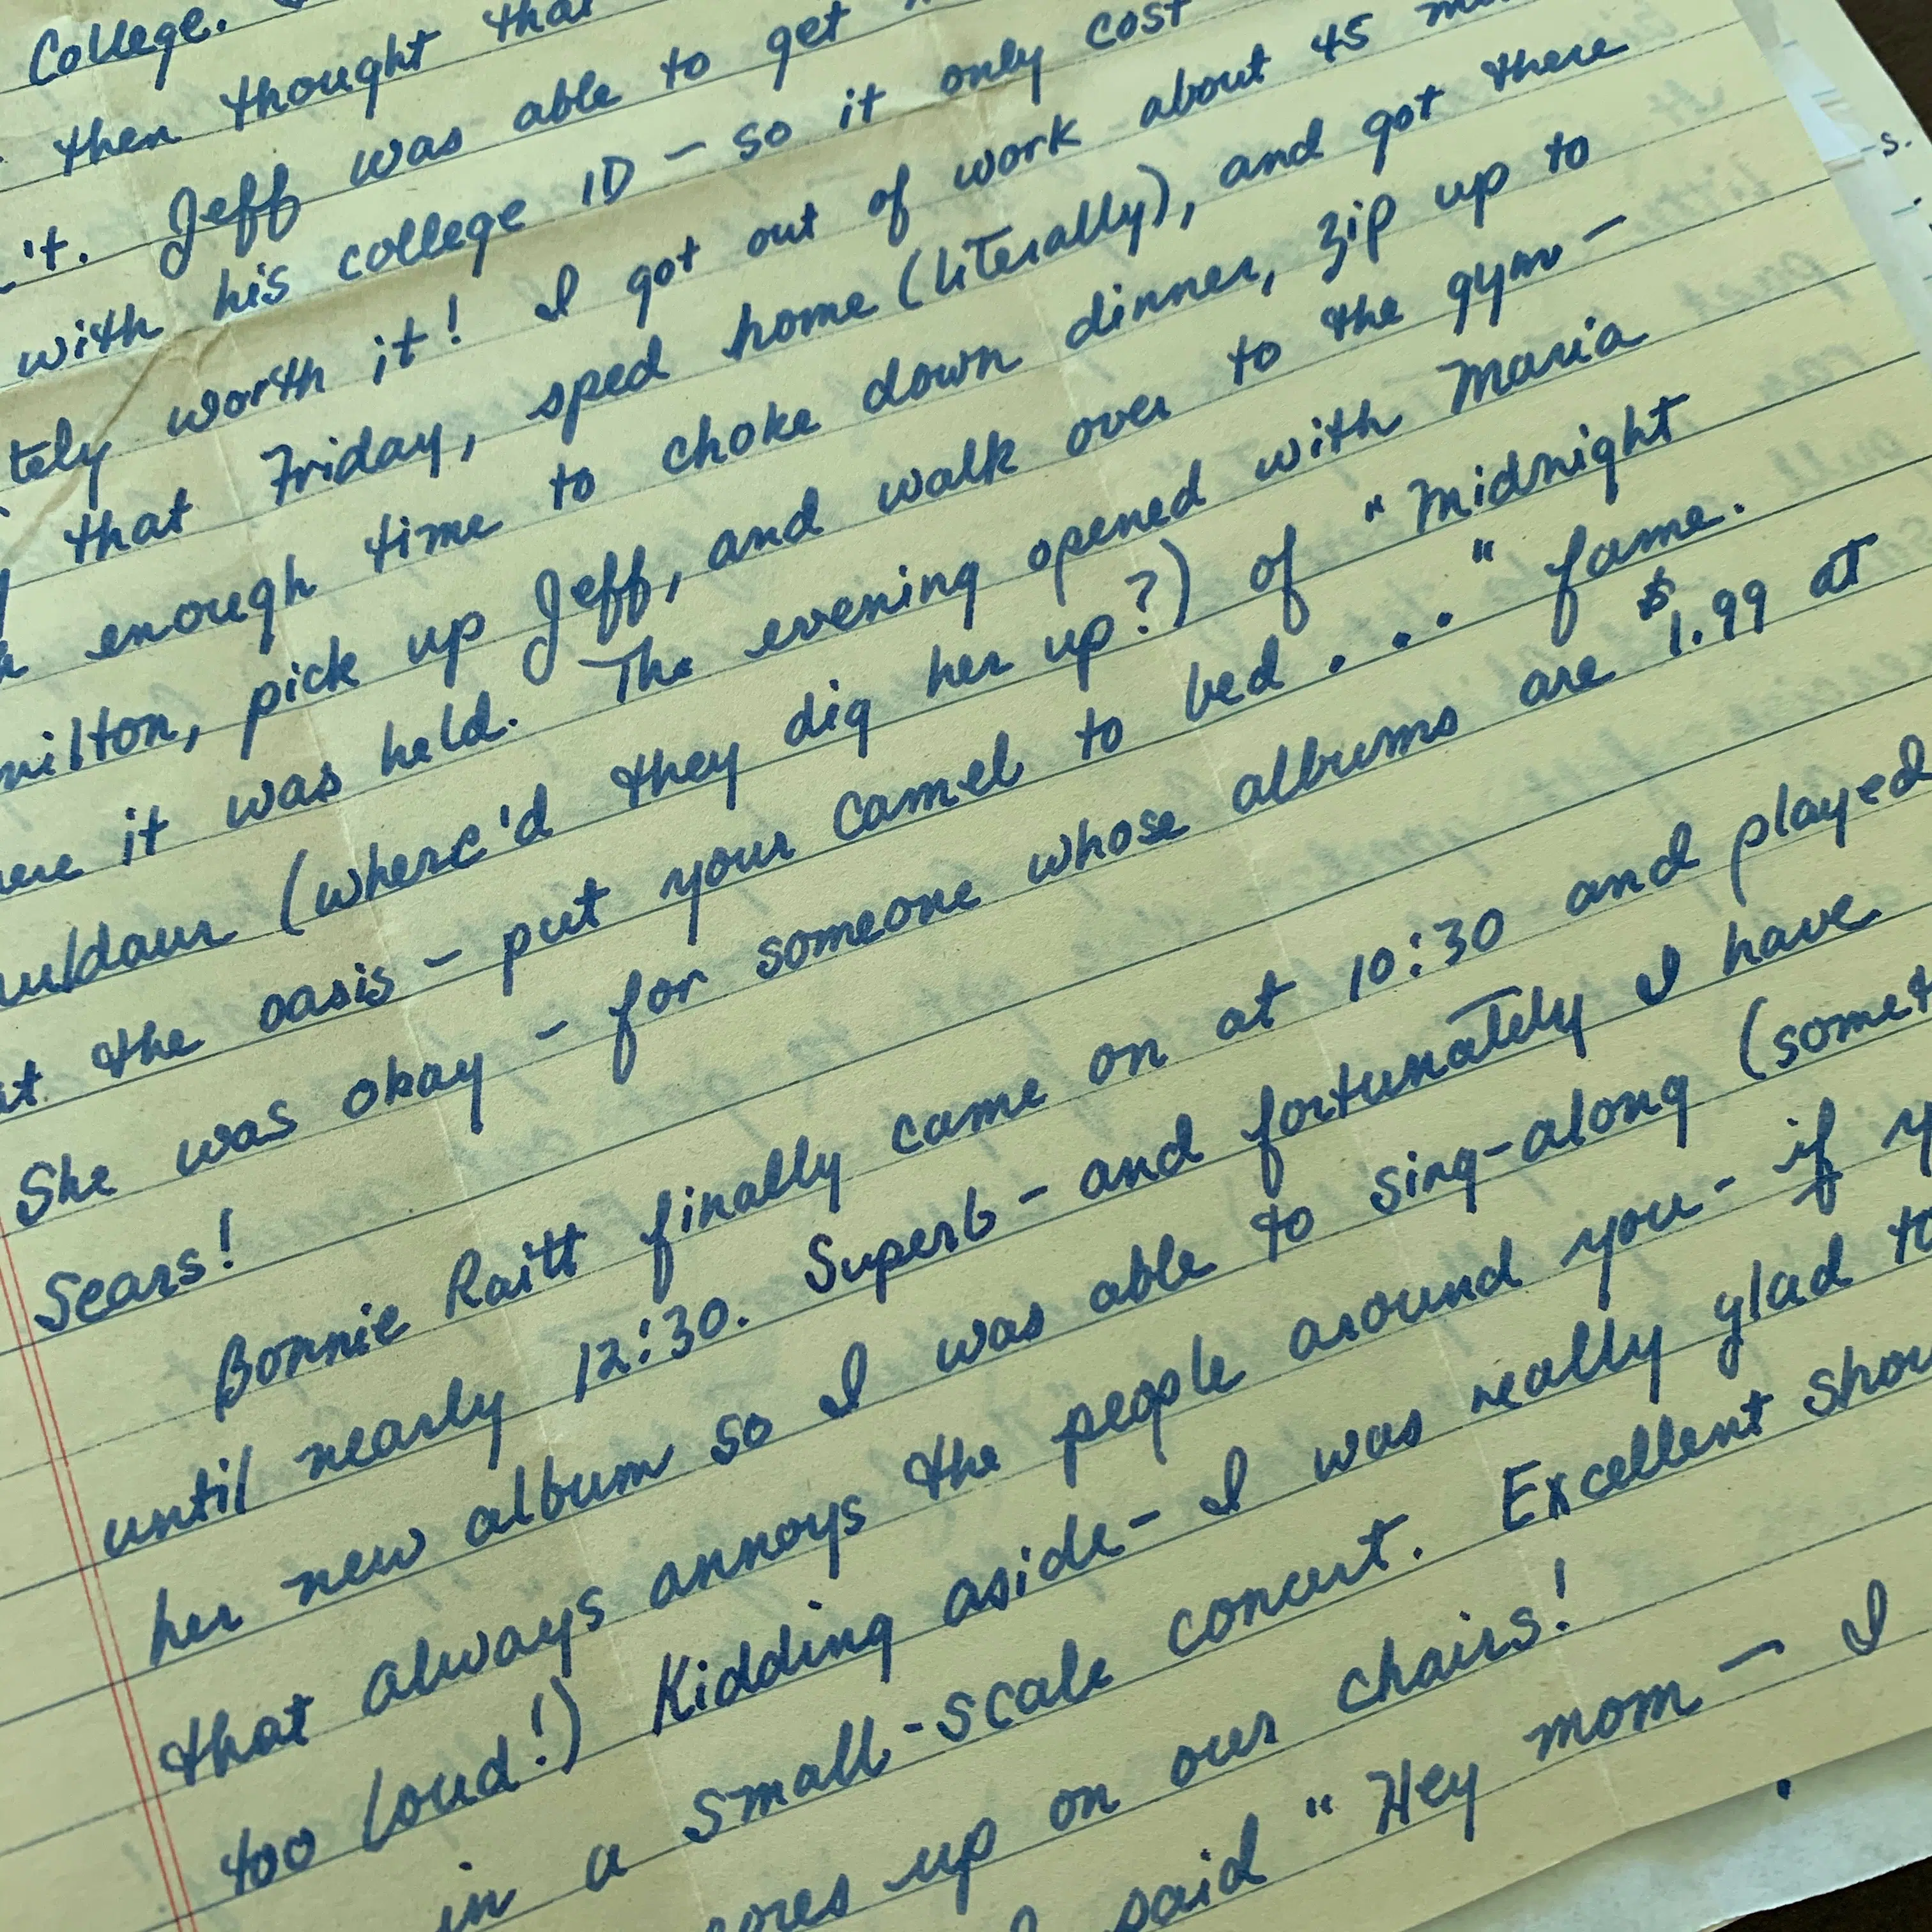 College.
then thought that
it. Jeff was able to get
with his college ID – so it only cost
tely worth it! I got out of work about 45
that Friday, sped home (literally), and got there
enough time to choke down dinner, zip up to
milton, pick up Jeff, and walk over to the gym –
ere it was held. The evening opened with Maria
uldaur (where'd they dig her up?) of "Midnight
at the oasis – put your camel to bed . . . " fame.
She was okay – for someone whose albums are $1.99 at
Sears!
Bonnie Raitt finally came on at 10:30 and played
until nearly 12:30. Superb – and fortunately I have
her new album so I was able to sing-along (somet
that always annoys the people around you – if y
too loud!) Kidding aside – I was really glad to
in a small-scale concert. Excellent show
ores up on our chairs!
I said "Hey mom – I
s.